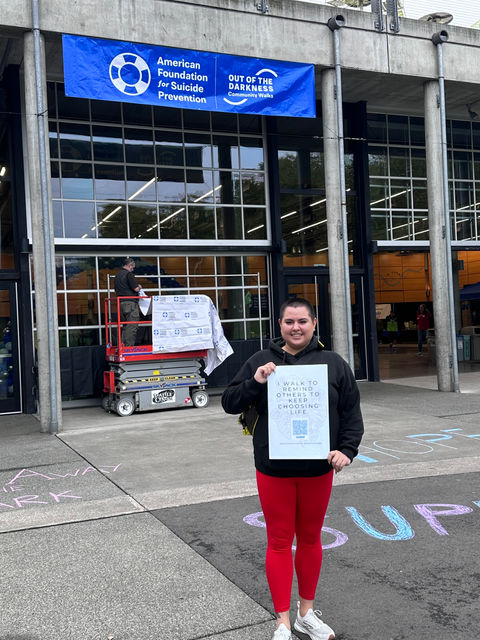 American
Foundation
for Suicide
Prevention
OUT OF THE
DARKNESS
Community Walks
I WALK TO
REMIND
OTHERS TO
KEEP
CHOOSING
LIFE
AWAY
RK
HOPE
SUP